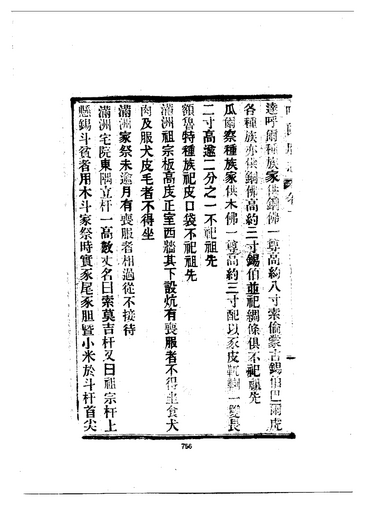 達呼爾種族家供銅佛一尊高約八寸索倫蒙古錫伯巴爾虎
各種族亦供銅佛高約三寸錫伯並祀綢條俱不祀祖先
瓜爾察種族家供木佛一尊高約三寸配以豕皮靴一雙長
二寸高逾二分之一不祀祖先
額魯特種族祀皮口袋不祀祖先
滿洲祖宗板高庋正室西牆其下設炕有喪服者不得坐食犬
肉及服犬皮毛者不得坐
滿洲家祭未逾月有喪服者相過從不接待
滿洲宅院東隅立杆一高數丈名曰索莫吉杆又曰祖宗杆上
懸錫斗貧者用木斗家祭時實豕尾豕胆暨小米於斗杆首尖
766